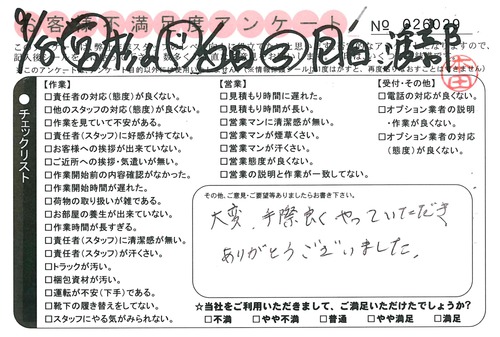 お客様不満足度アンケート
No 026020
チェックリスト
【作業】
□責任者の対応(態度)が良くない。
□他のスタッフの対応(態度)が良くない。
□作業を見ていて不安がある。
□責任者(スタッフ)に好感が持てない。
□お客様への挨拶が出来ていない。
□ご近所への挨拶・気遣いが無い。
□作業開始前の内容確認がなかった。
□作業開始時間が遅れた。
□荷物の取り扱いが雑である。
□お部屋の養生が出来ていない。
□作業時間が長すぎる。
□責任者(スタッフ)に清潔感が無い。
□責任者(スタッフ)が汗くさい。
□トラックが汚い。
□梱包資材が汚い。
□運転が不安(下手)である。
□靴下の履き替えをしてない。
□スタッフにやる気がみられない。
【営業】
□見積もり時間に遅れた。
□見積もり時間が長い。
□営業マンに清潔感が無い。
□営業マンが煙草くさい。
□営業マンが汗くさい。
□営業態度が良くない。
□営業の説明と作業が一致してない。
【受付・その他】
□電話の対応が良くない。
□オプション業者の説明
・作業が良くない。
□オプション業者の対応
(態度)が良くない。
その他、ご意見・ご要望等ありましたらお書き下さい。
大変、手際良くやっていただき
ありがとうございました。
☆当社をご利用いただきまして、ご満足いただけたでしょうか?
□不満 □やや不満 □普通 □やや満足 □満足